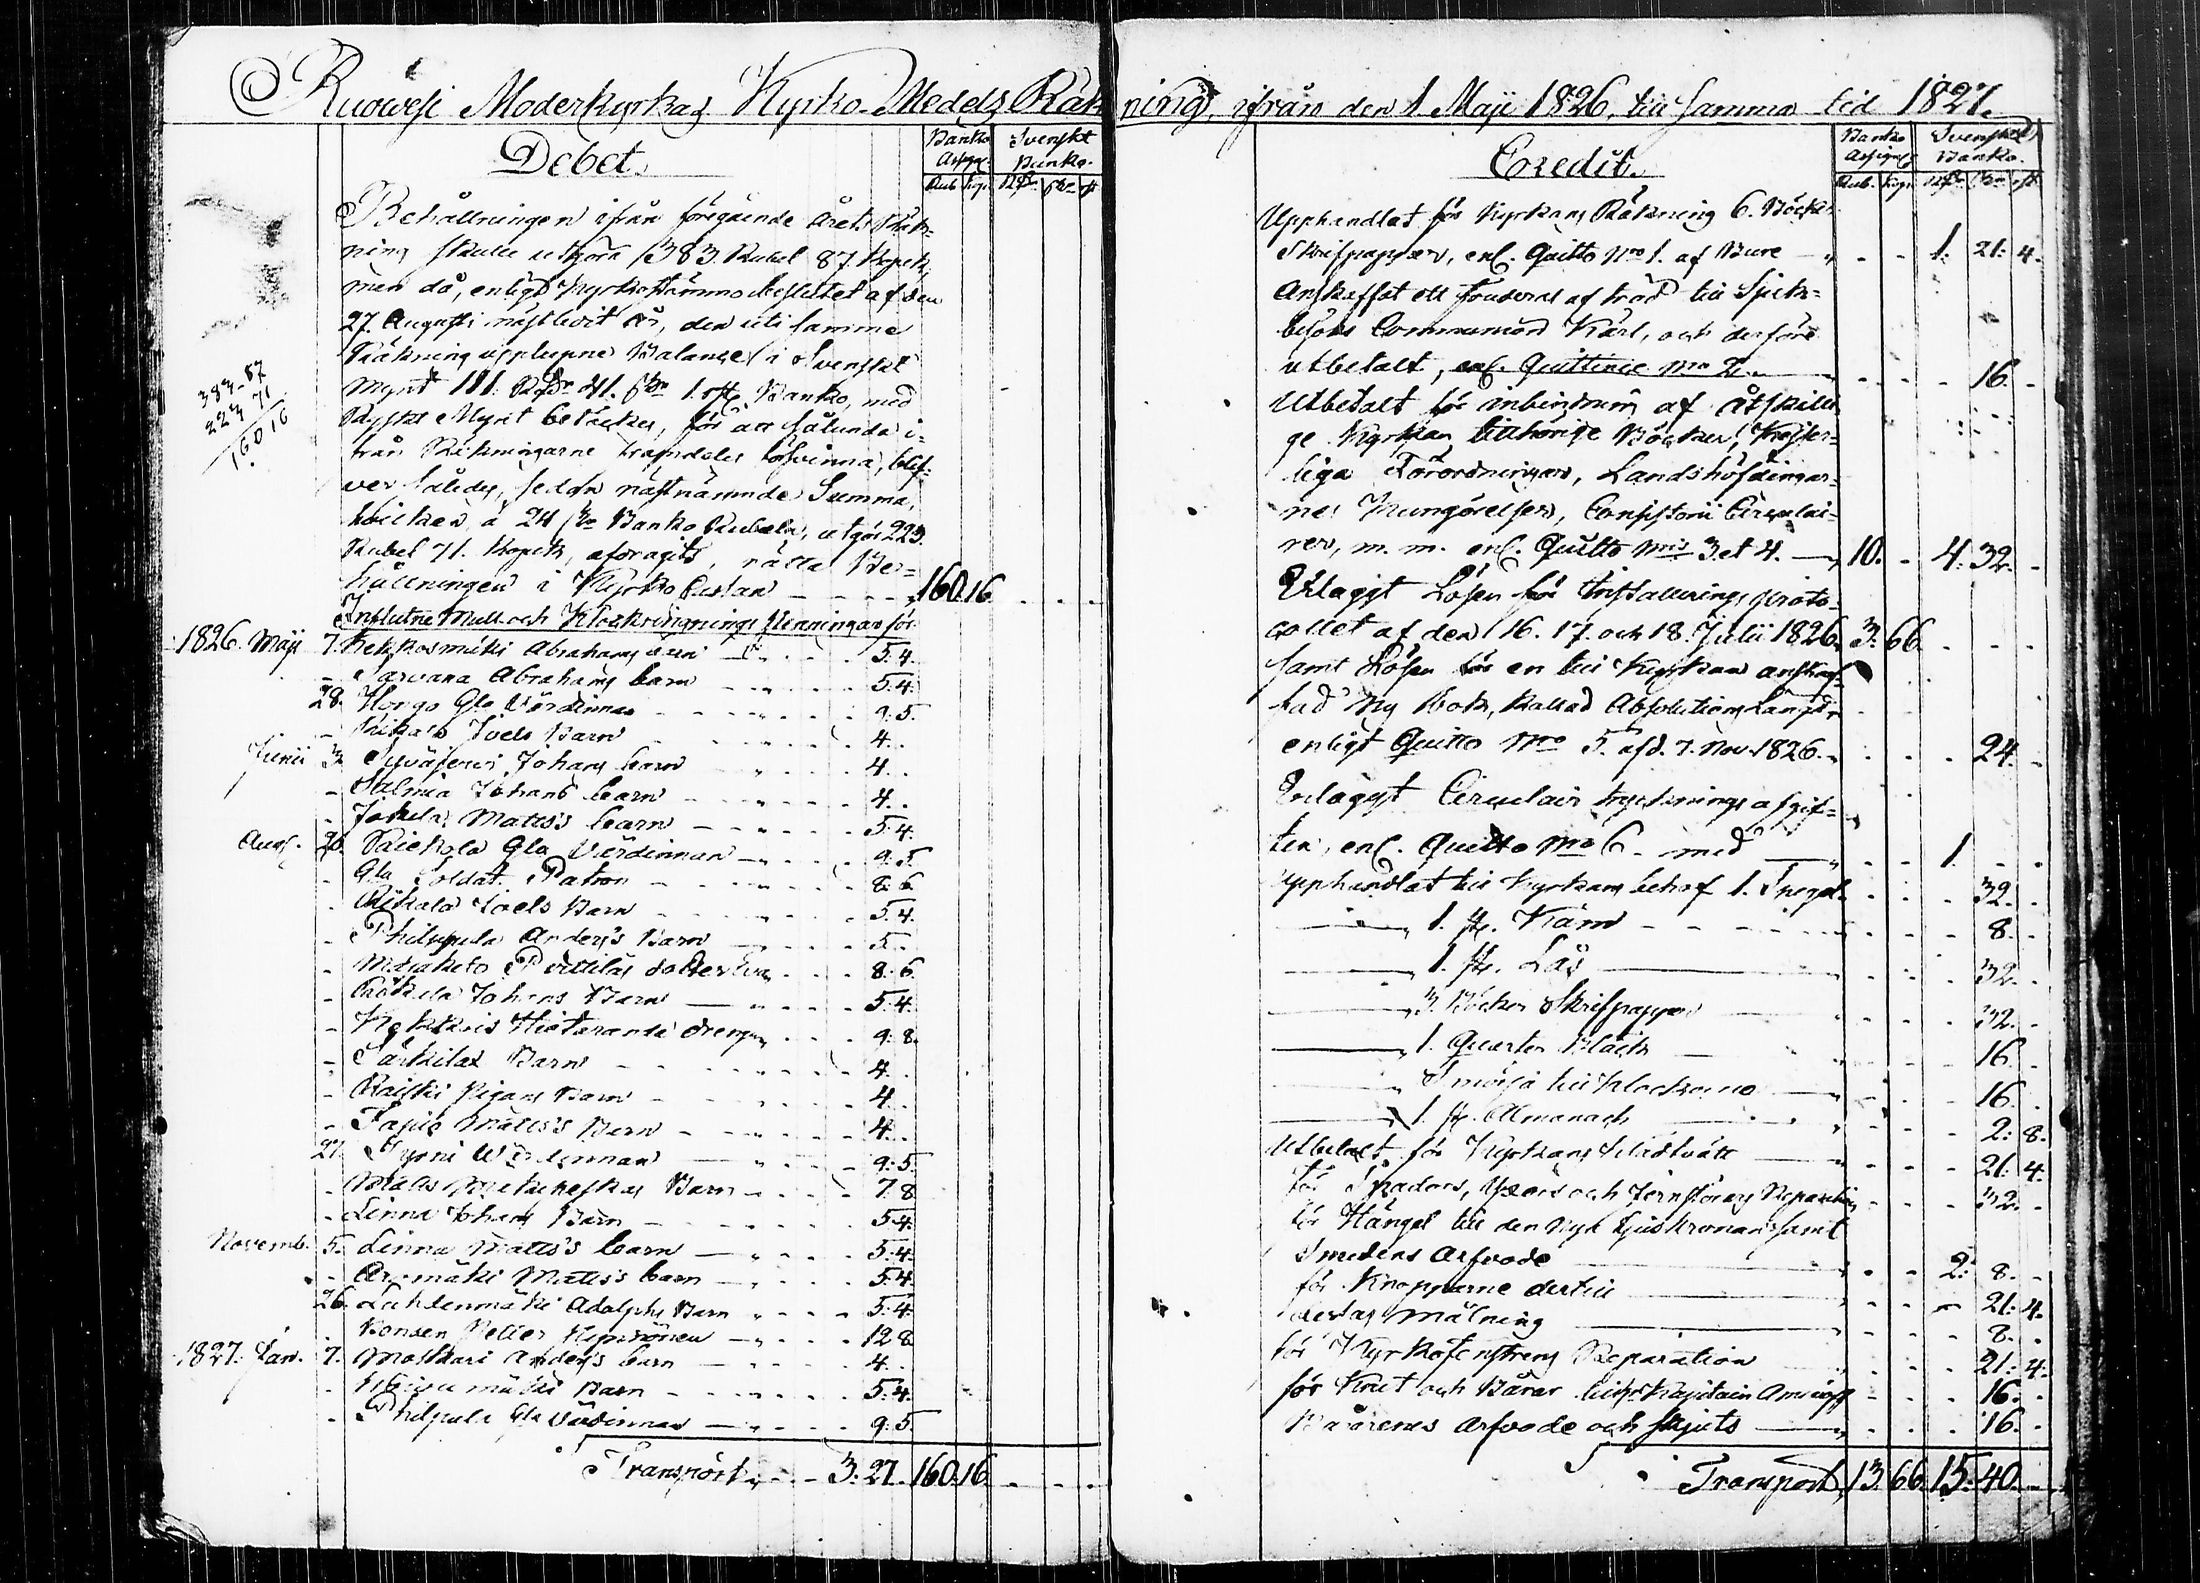 Ruowesi Moderkyrkas Kyrko-Medels Räkning, ifrån den 1 Maji 1826, till samma tid 1827.
Debet.
Banko Assign. Svenskt Banko.
Rub. Kop. Rdr. ß. rst.
Behållningen ifrån föregående årets Räk=
ning skulle utgöra 383 Rubel 87 Kopek,
men då, enligt Kyrkostämmo beslutet af den
27 Augusti nästledit år, den uti samma
Räkning upplupne Balance i Svenskt
Mynt 111 Rdr 41 ß. 1. rst. Banko, med
Ryskt Mynt betäckes, för att sålunda i=
från Räkningarne framdeles försvinna, blif=
ver således, sedan nästnämnde Summa,
hvilken, à 24 ß Banko Rubeln, utgör 223
Rubel 71. Kopek, afdragits, rätta Be=
hållningen i Kyrko Cassan 160 16
383-87
223 71
160 16
Influtne Mull och Klockringnings Penningar för
1826. Maji 7. Kekkosmäki Abrahams barn 5.4.
Sarvana Abrahams barn 5.4.
28. Hongo Gla Värdinnan 9.5.
Joels Barn 4.
Junii 3. Syväseni Johans barn 4.
Salmia Johans barn 4.
Jokela Matts's barn 5.4.
Aug. 20. Gla Värdinnan 9.5
Gla Soldat Patron 8.6
Rikala Joels Barn 5.4.
Philppula Anders's Barn 5.
8.6
Johans Barn 5.4.
9.8.
Särkilax Barn 4.
Raiski Pigans Barn 4.
Tapio Matts's Barn 4.
27. Värdinnan 9.5.
Barn 7.8
Linna Johans Barn 5.4.
Novemb. 5. Linna Matts's barn 5.4.
Aromäki Matts's barn 5.4.
26. Lahdenmäki Adolphs Barn 5.4.
Bonden Petter 12.8
1827. Jan. 7. Anders's barn 4.
Barn 5.4.
Philpula Gla Värdinnan 9.5.
Transport 3.27. 160.16.
Credit.
Banko Assign. Svenskt Banko.
Rub. Kop. Rdr. ß. rst.
Upphandlat för Kyrkans Räkning 6. Böcker
Skrifpapper, enl. Quitto No 1. af Bure 1. 21. 4.
Anskaffat ett Fouderal af träd till Sjuk=
besöks Communion Kärl, och derföre
utbetalt, enl. Quittence No 2. 16.
Utbetalt för inbindning af åtskilli=
ge Kyrkan tillhörige Böcker, Kejser=
liga Förordningar, Landshöfdingar=
nes Kungörelser, Consistorii Circulai=
rer, m. m. enl. Quitto Nris 3. et 4. 10. 4. 32.
Erlagt Lösen för Installerings proto=
collet af den 16. 17. och 18. Julii 1826. 3. 66.
samt Lösen för en till Kyrkan anskaf=
fad Ny Bok, kallad Absolutions Längd,
enligt Quitto No 5. afd. 7. Nov. 1826. 24.
Erlagt Circulair trycknings afgif=
ten, enl. Quitto No 6. med 1.
Upphandlat till Kyrkans behof 1. Spegel 32.
1. st. Kam 8.
1. st. Lås 32.
3. Böcker Skrifpapper 32.
1. Quarter Bläck 16.
Smörja till klockorne 16.
1. st. Almanach 2. 8.
Utbetalt för Kyrkans klädtvätt 21. 4.
för Spadars, Yxors och Jernstörars Reparation 32.
för Hängsl till den Nya Ljuskronan samt
Smedens Arfvode 2. 8.
för Knapparne dertill 21. 4.
deras Målning 8.
för Kyrkofenstrens Reparation 21. 4.
för Krut och Bårar till Capitain 16.
Bärarenes Arfvode och skjuts 16.
Transport 13 66. 15. 40.